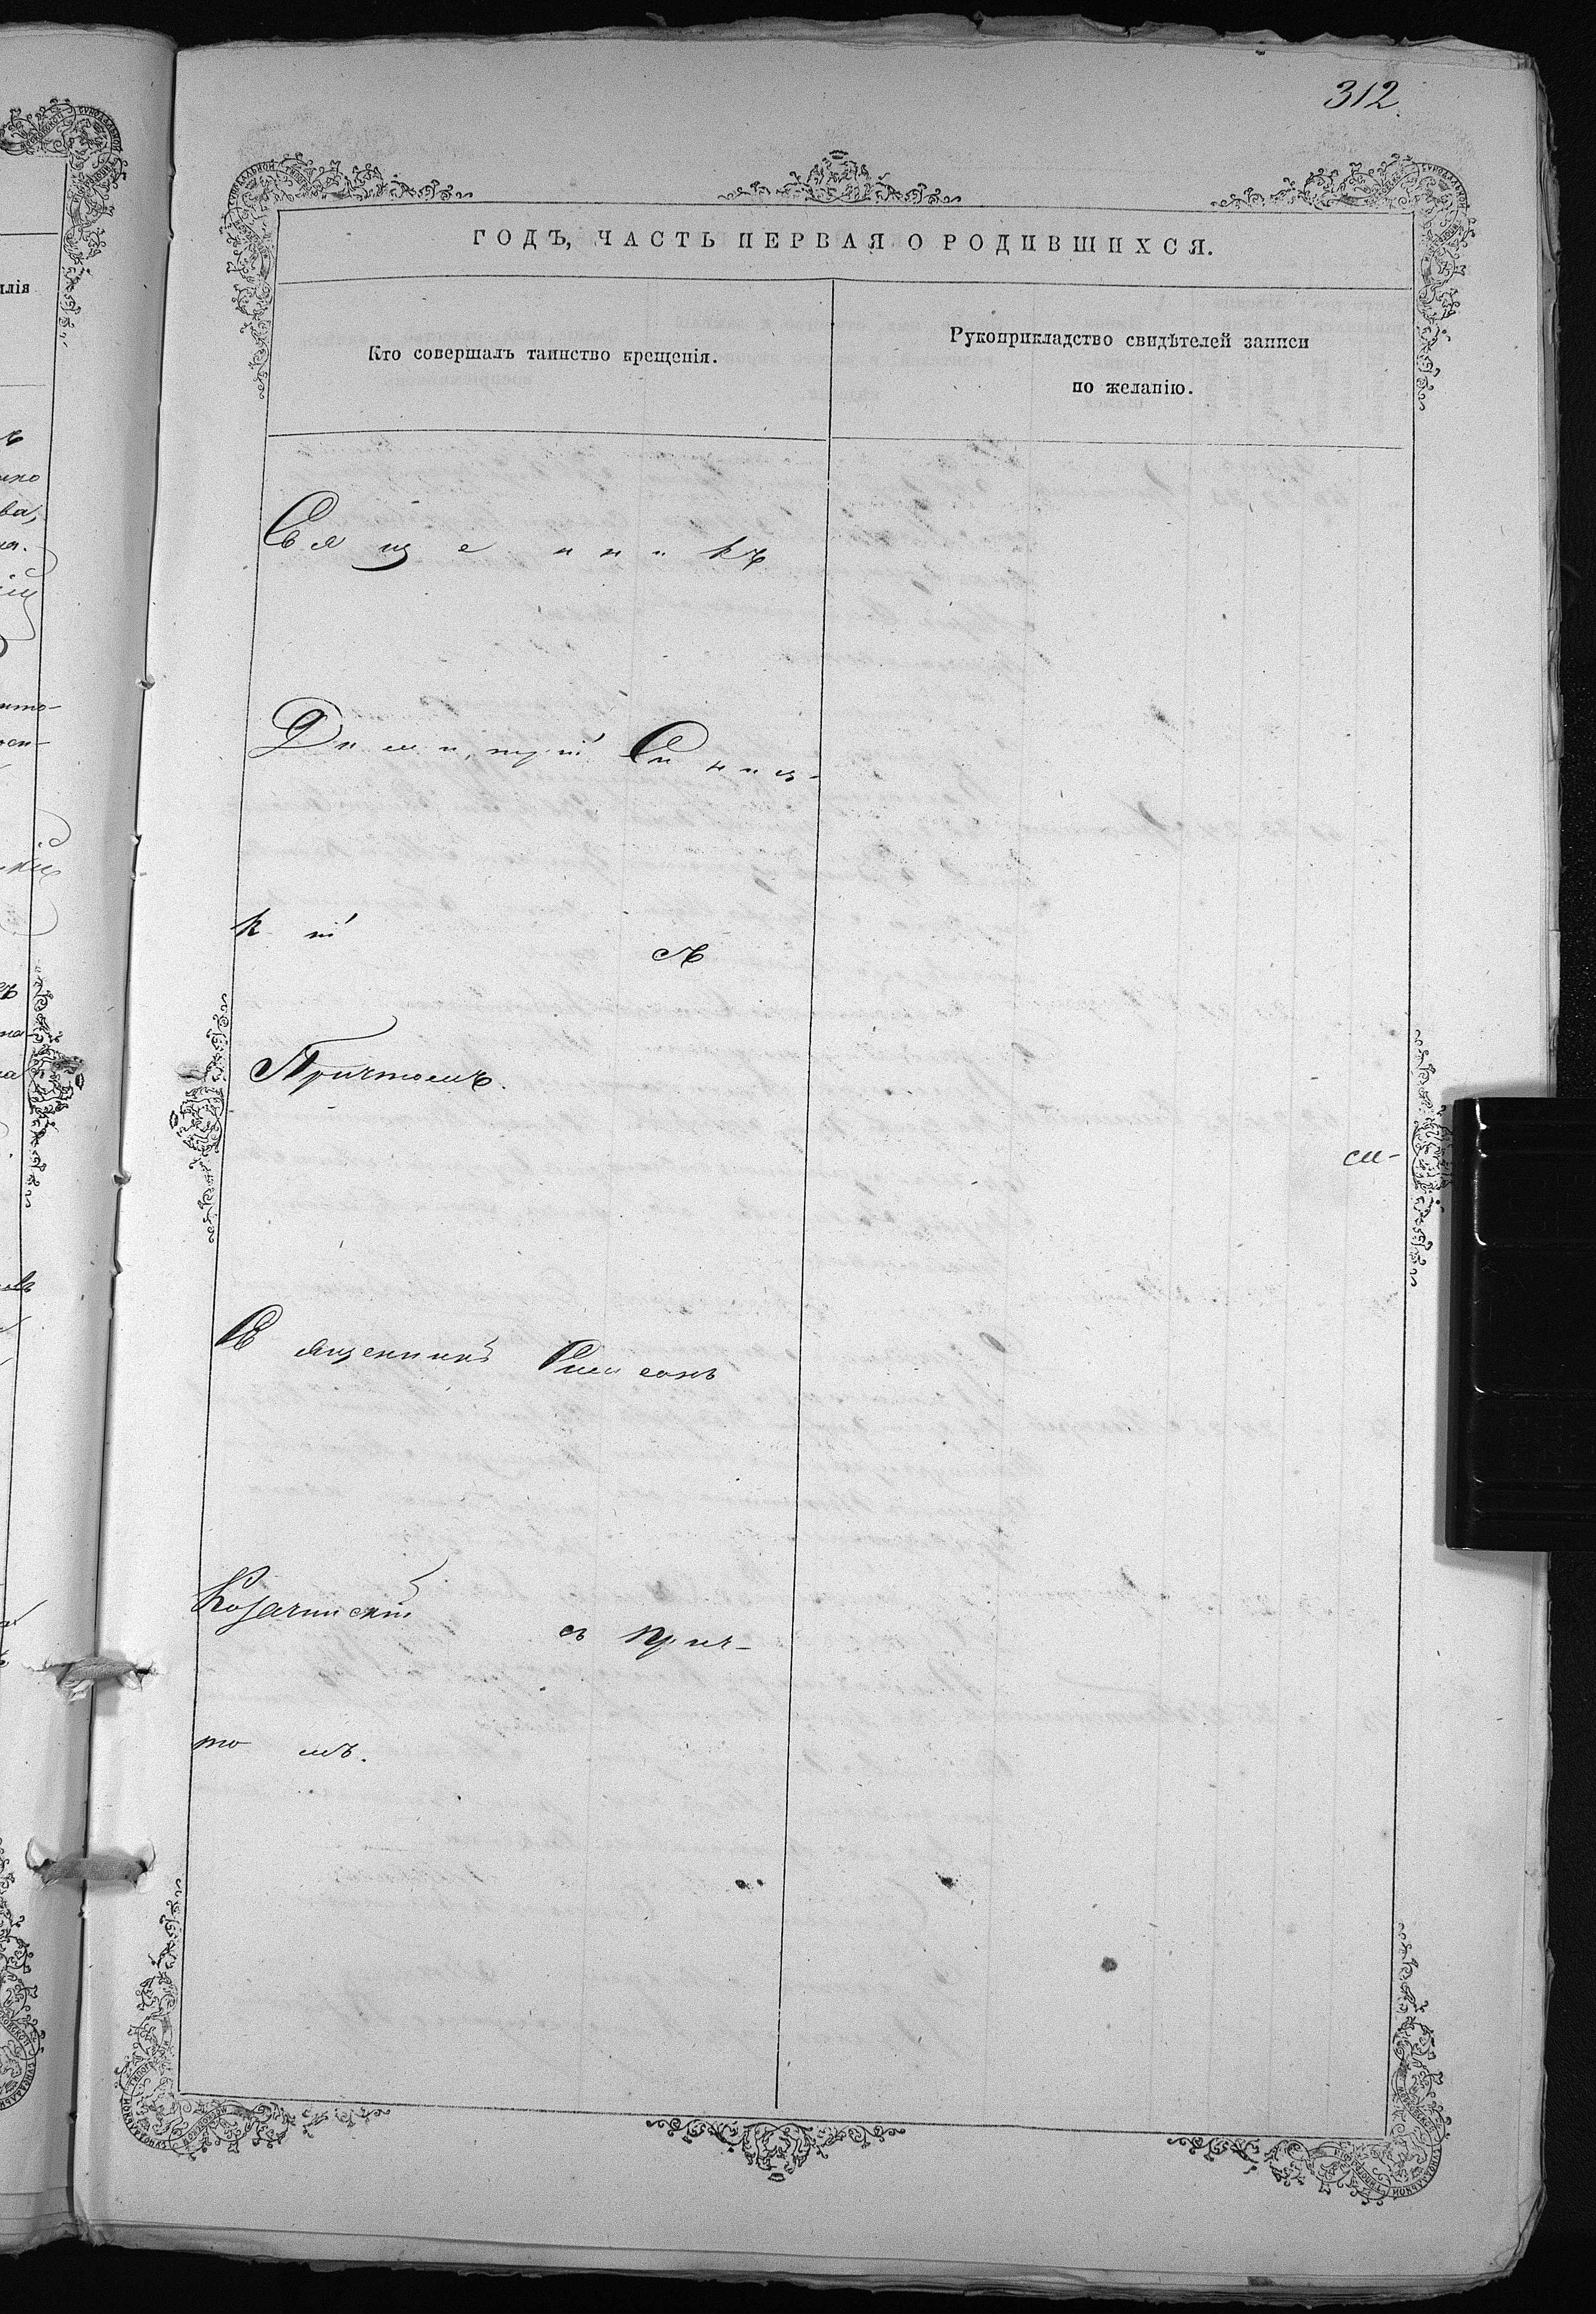 312.
ГОДЪ, ЧАСТЬ ПЕРВАЯ О РОДИВШИХСЯ.
Кто совершалъ таинство крещенія.
Рукоприкладство свидѣтелей записи
по желанію.
Священникъ
Димитрій Синиц-
кій съ
Причтомъ.
см-
Священникъ Симеонъ
Козачинскій съ прич-
томъ.